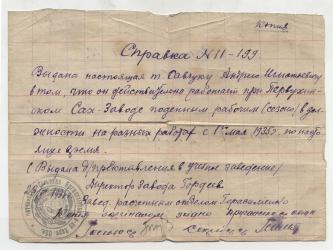 Копия
Справка N 11-199
Выдана настоящая т. Савчук Андрею Игнатьевичу
в том, что он действительно работает при Первухин-
ском Сах-Заводе поденным рабочим (сезон) в дол-
жности на разных работах с 1го мая 1935г. по насто-
ящее время.
(Выдана для представления в учебное заведение)
Директор завода Гордеев
Завед. расчетным отделом Герасименко
оригиналом